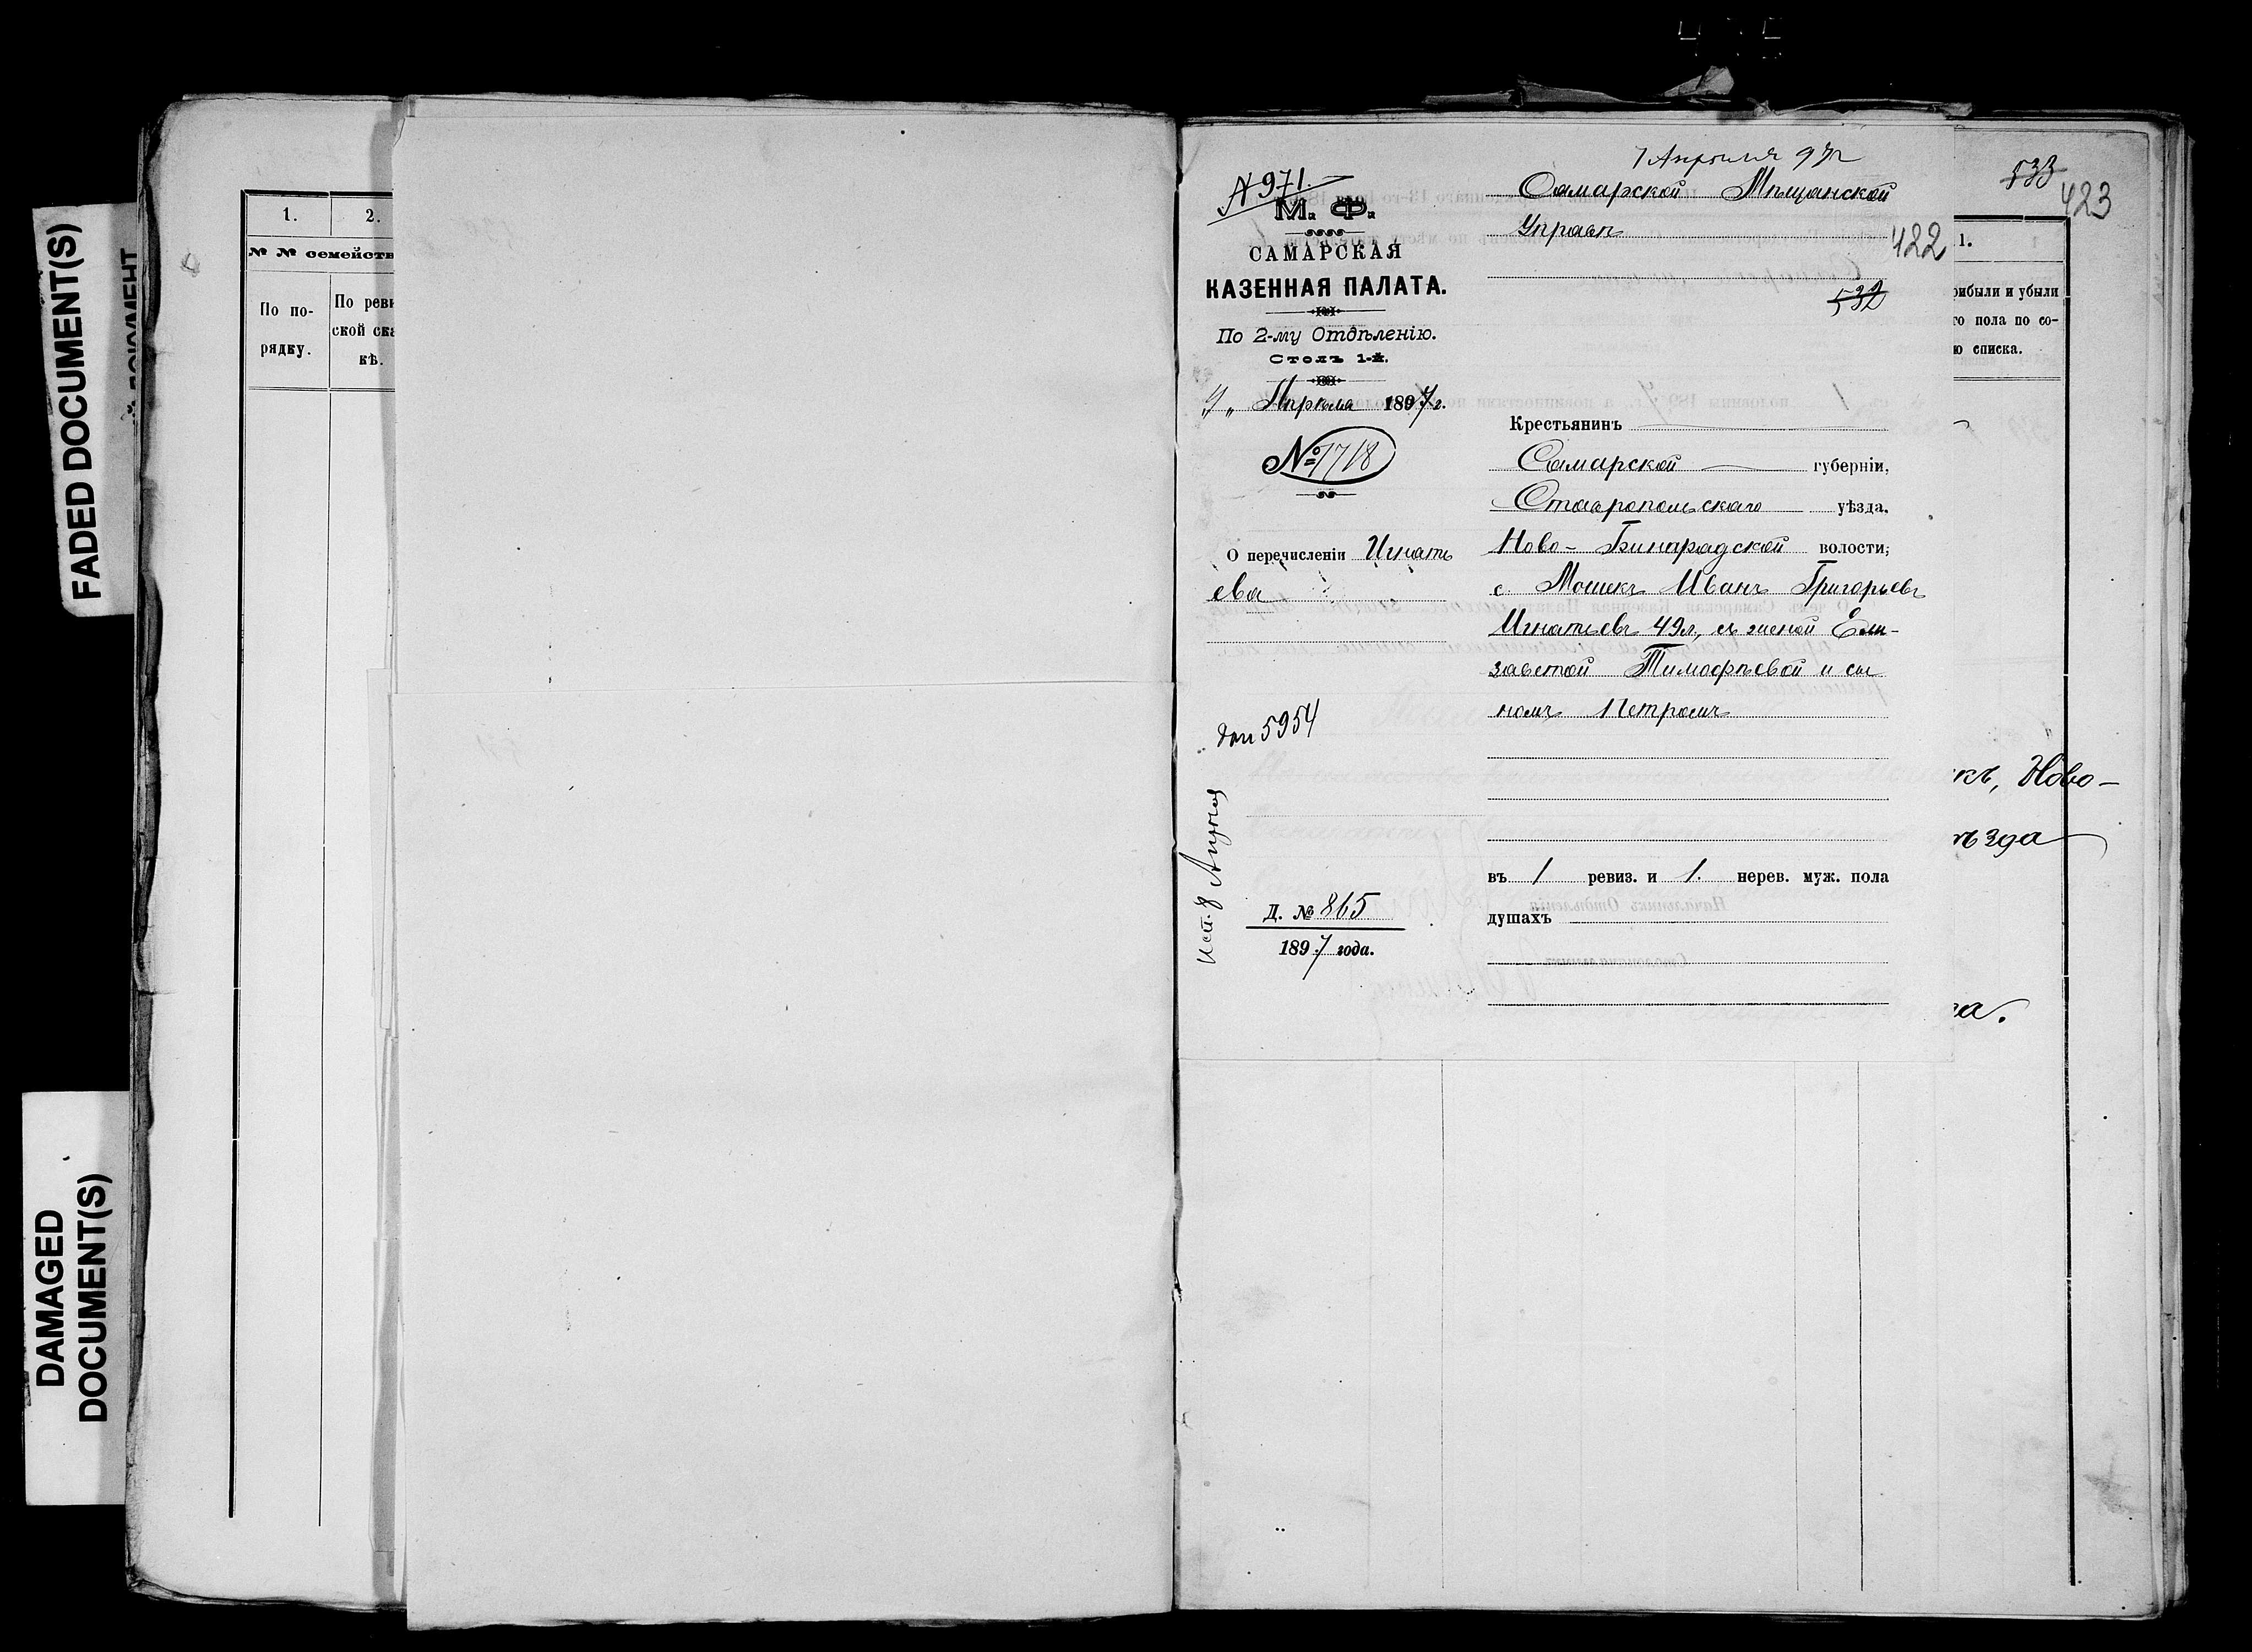 FADED DOCUMENT(S)
DAMAGED
DOCUMENT(S)
1.
2.
№ № семейств
По по-
рядку.
По реви
ской ска
кѣ.
7 Апрѣля 97 г
№ 971.
М. Ф.
САМАРСКАЯ
КАЗЕННАЯ ПАЛАТА.
По 2-му Отдѣленію.
Столъ 1-й.
Апрѣля 1897 г.
№ 1718
О перечисленіи Игнать
ева
5954
исп. 8 Апрѣля
Д. № 865
1897 года.
Самарской Мѣщанской
Управѣ
422
532
Крестьянинъ
Самарской губерніи,
Ставропольскаго уѣзда.
Ново-Бинарадской волости;
с. Мошекъ Иванъ Григорьевъ
Игнатьевъ 49 л., съ женой Ели-
заветой Тимофѣевой и сы
номъ Петромъ
въ 1 ревиз. и 1. нерев. муж. пола
душахъ
533
423
1.
рибыли и убыли
го пола по со-
ю списка.
къ, Ново-
ѣзда
га.